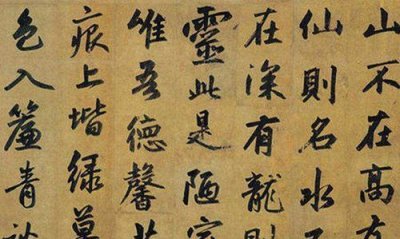 山不在高有
仙則名水不
在深有龍則
靈此是陋室
唯吾德馨
痕上堦緑草
色入簾青